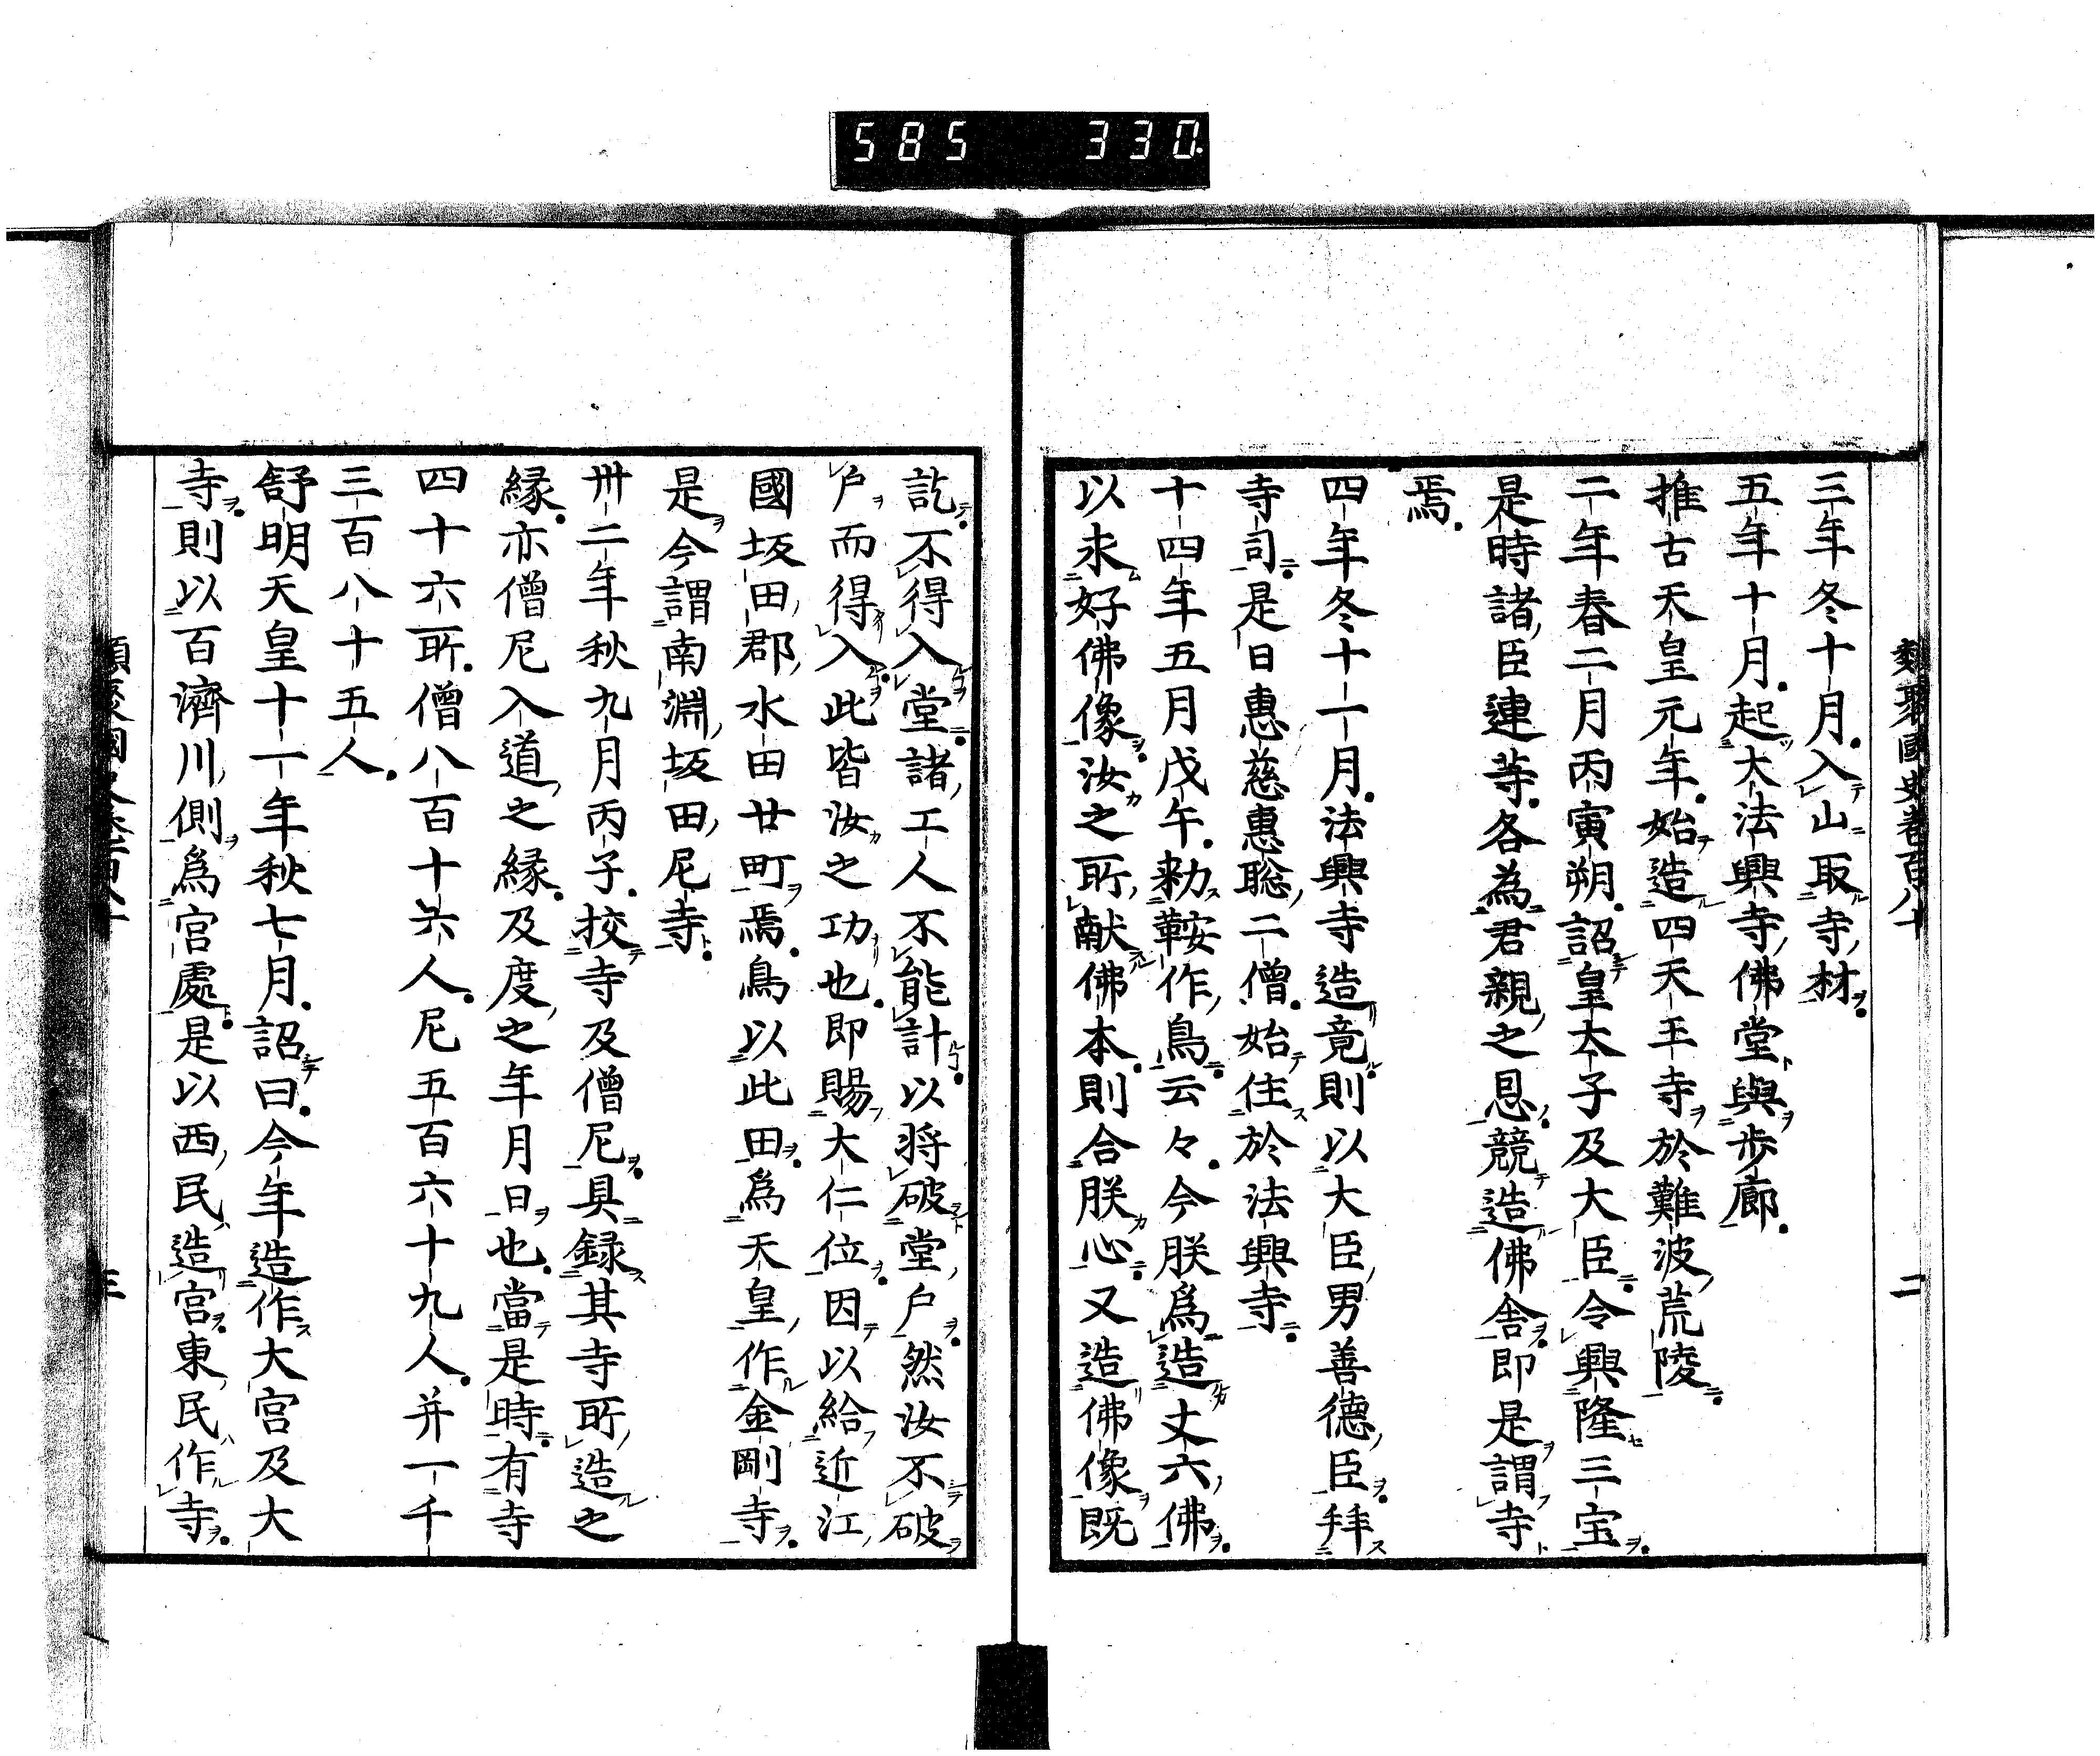 585 330
類聚國史巻百八十 二
三年冬十月入山取寺材
五年十月起大法興寺佛堂與歩廊
推古天皇元年始造四天王寺於難波荒陵
二年春二月丙寅朔詔皇太子及大臣令興隆三宝
是時諸臣連等各為君親之恩競造佛舎即是謂寺
焉
四年冬十一月法興寺造竟則以大臣男善德臣拜
寺司是日惠慈惠聡二僧始住於法興寺
十四年五月戊午勅鞍作鳥云々今朕爲造丈六佛
以求好佛像汝之所献佛本則合朕心又造佛像既
訖不得入堂諸工人不能計以将破堂戸然汝不破
戸而得入此皆汝之功也即賜大仁位因以給近江
國坂田郡水田廿町焉鳥以此田爲天皇作金剛寺
是今謂南淵坂田尼寺
卅二年秋九月丙子挍寺及僧尼具録其寺所造之
縁亦僧尼入道之縁及度之年月日也當是時有寺
四十六所僧八百十六人尼五百六十九人并一千
三百八十五人
舒明天皇十一年秋七月詔曰今年造作大宮及大
寺則以百濟川側爲宮處是以西民造宮東民作寺
三